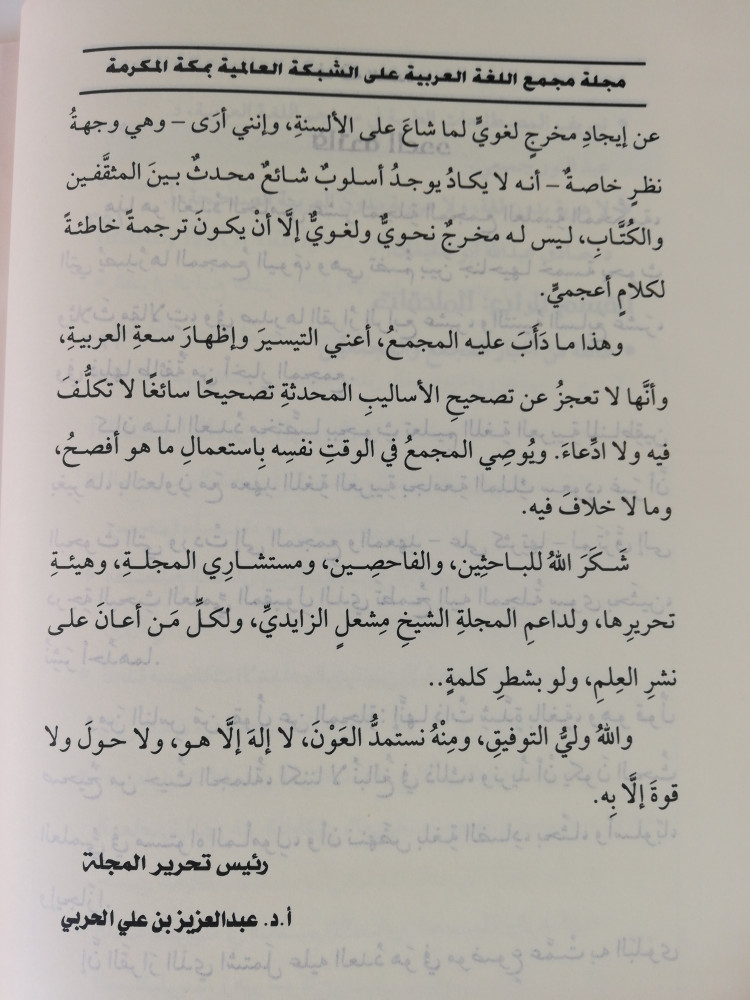 مجلة مجمع اللغة العربية على الشبكة العالمية بمكة المكرمة
عن إيجادِ مخرجٍ لغويٍّ لما شاعَ على الألسنةِ، وإنني أرَى – وهي وجهةُ
نظرٍ خاصةٌ – أنه لا يكـادُ يوجـدُ أسلـوبٌ شـائعٌ محـدثٌ بـينَ المثقَّفـين
والكُتَّابِ، ليس له مخرجٌ نحويٌّ ولغويٌّ إلَّا أنْ يكـونَ ترجمـةً خاطئـةً
لكلامٍ أعجميٍّ.
وهذا مـا دَأَبَ عليـه المجمـعُ، أعنـي التيسـيرَ وإظهـارَ سـعةِ العربيـةِ،
وأنَّها لا تعجزُ عن تصحيحِ الأساليبِ المحدثةِ تصحيحًا سائغًا لا تكلُّفَ
فيه ولا ادِّعاءَ. ويُوصِي المجمعُ في الوقتِ نفسِه بِاستعمالِ ما هو أفصـحُ،
وما لا خلافَ فيه.
شَـكَرَ اللهُ للبـاحثِين، والفاحصِـين، ومستشـارِي المجلـةِ، وهيئـةِ
تحريرِها، ولداعمِ المجلةِ الشيخِ مِشعلٍ الزايديِّ، ولكلِّ مَـن أعـانَ علـى
نشرِ العِلمِ، ولو بشطرِ كلمةٍ..
واللهُ وليُّ التوفيقِ، ومِنْهُ نستمدُّ العَوْنَ، لا إلهَ إلَّا هـو، ولا حـولَ ولا
قوةَ إلَّا بِه.
رئيس تحرير المجلة
أ.د. عبدالعزيز بن علي الحربي